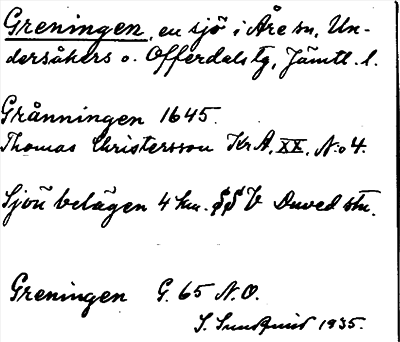 Greningen, en sjö i Åre sn, Un-
dersåkers o. Offerdals tg, Jämtl. l.
Grånningen 1645.
Thomas Christersson Kr A, XX, No 4.
Sjön belägen 4 km. §§ V Duved stn.
Greningen G. 65 N.O.
S. Sundquist 1935.